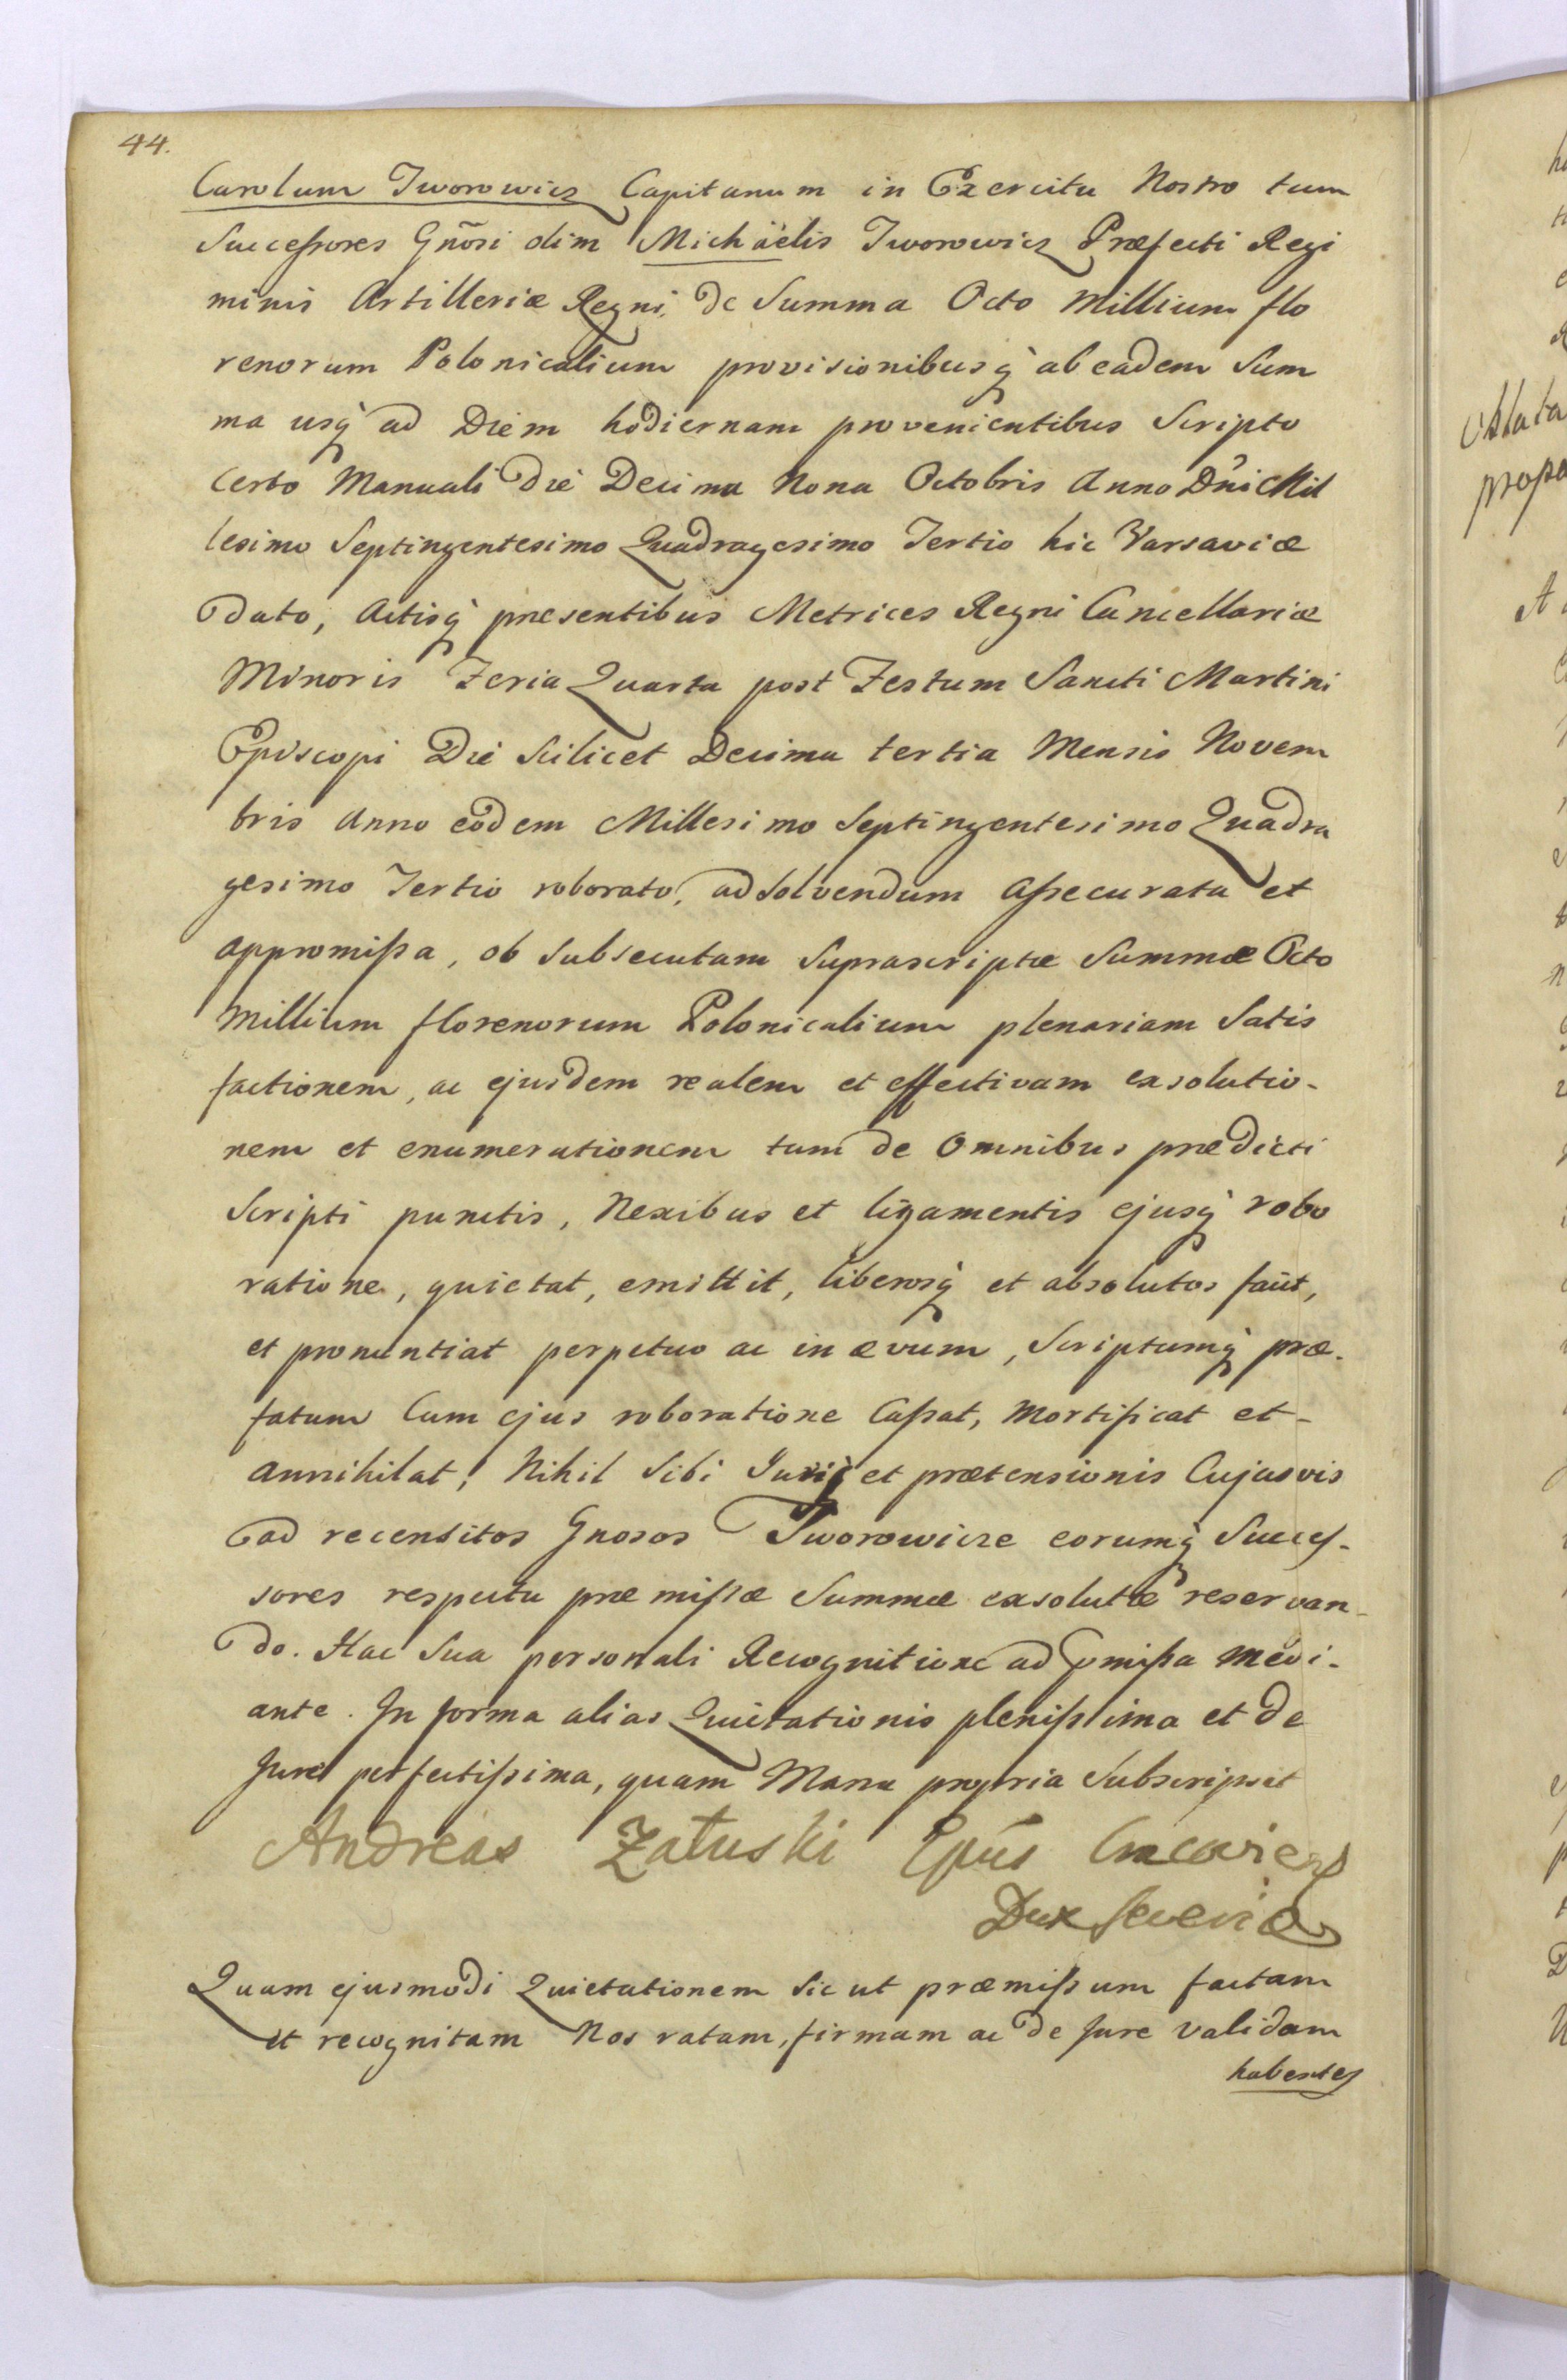 44.
Carolum Tworowicz Capitanum in Exercitu Nostro tum
Successores Gñosi olim Michäelis Tworowicz Præfecti Regi
minis Artilleriæ Regni, de Summa Octo Millium flo
renorum Polonicalium provisionibusq̀ ab eadem Sum
ma usq̀ ad Diem hodiernam provenientibus Scripto
Certo Manuali Die Decima Nona Octobris Anno Dñi Mil
lesimo Septingentesimo Quadragesimo Tertio hic Varsaviæ
dato, Actisq̀ præsentibus Metrices Regni Cancellariæ
Minoris Feria Quarta post Festum Sancti Martini
Episcopi Die Scilicet Decima tertia Mensis Novem
bris Anno eodem Millesimo Septingentesimo Quadra
gesimo Tertio roborato, ad Solvendum Assecurata et
appromissa, ob Subsecutam Suprascriptæ Summæ Octo
Millium florenorum Polonicalium plenariam Satis
factionem, ac ejusdem realem et effectivam exsolutio-
nem et enumerationem tum de Omnibus prædicti
Scripti punctis, Nexibus et ligamentis ejusq̀ robo
ratione, quietat, emittit, liberosq̀ et absolutos faūt,
et pronuntiat perpetuo ac in ævum, Scriptumq̀ præ-
fatum Cum ejus roboratione Cassat, Mortificat et-
annihilat; Nihil Sibi Juris et prætensionis Cujusvis
ad recensitos Gnosos Tworowicze eorumq̀ Succes-
sores respectu præmissæ Summæ exsolutæ reservan-
do. Hac Sua personali Recognitione ad pmissa medi-
ante. In forma alias Quietationis plenissima et de
Jure perfectissima, quam Manu propria Subscripsit
Andreas Załuski Epūs Cracoviens
Dux Severiæ
Quam ejusmodi Quietationem Sic ut præmissum factam
et recognitam Nos ratam, firmam ac de Jure validam
habentes
oblata